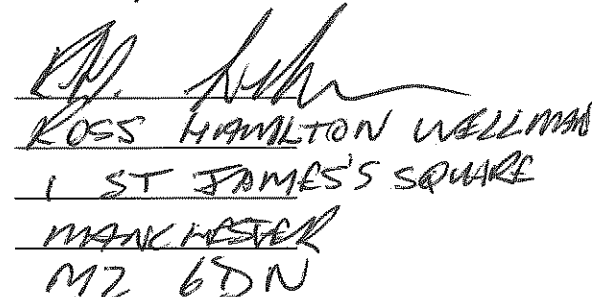 ROSS HAMILTON WELLMAN
1 ST JAMES'S SQUARE
MANCHESTER
M2 6DN